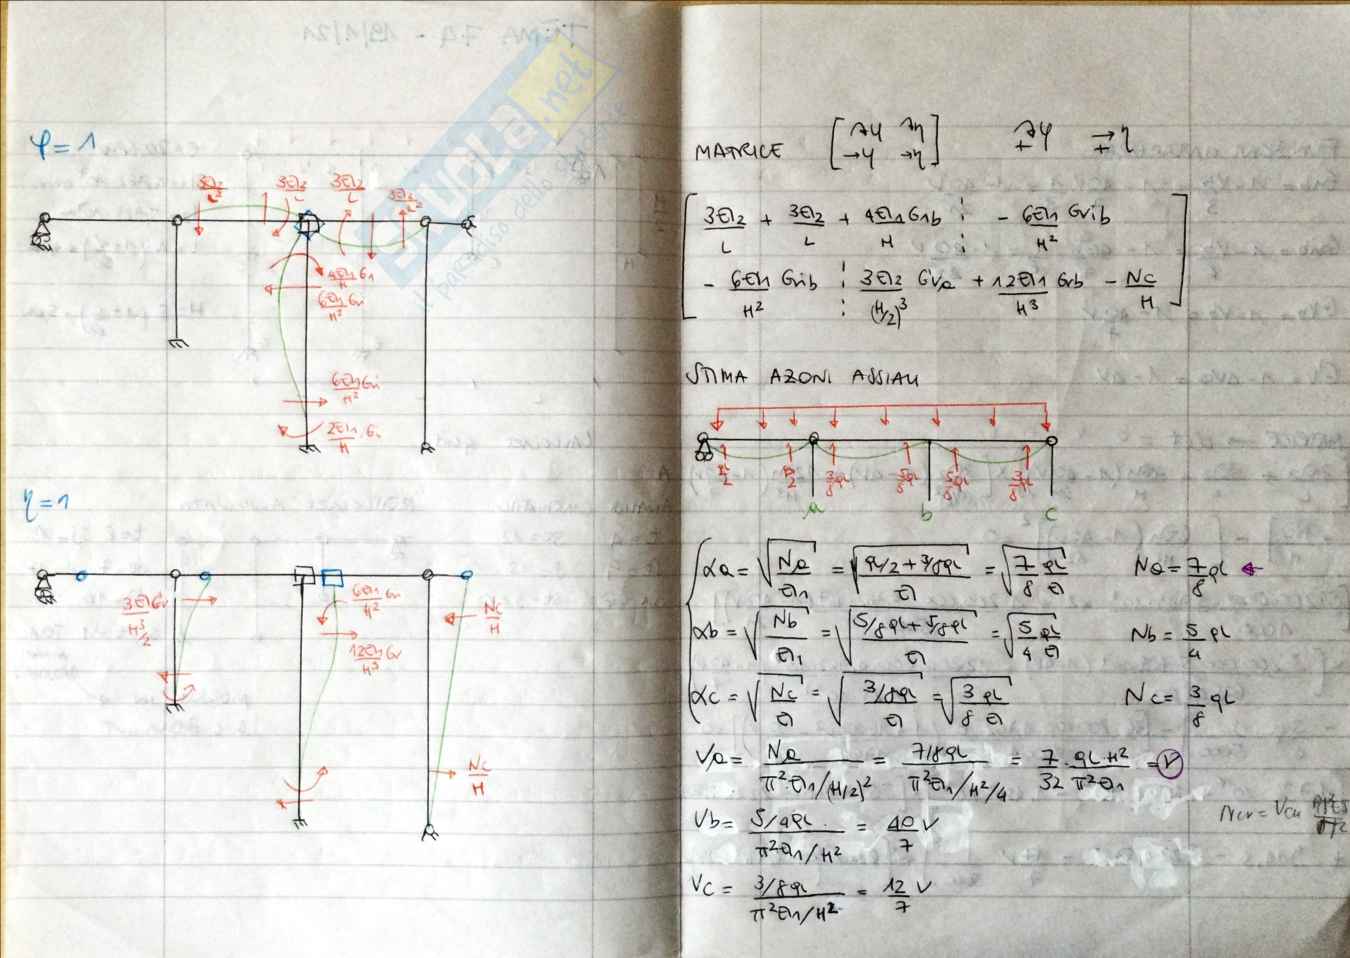 φ = 1
3EI₂/L²
3EI₂/L
3EI₂/L
3EI₂/L²
4EI₁/H G₁
6EI₁ Gi/H²
6EI₁ Gi/H²
2EI₁ Gi/H
η = 1
3EI Gv/H³/2
6EI₁ Gi/H²
12EI₁ Gv/H³
Nc/H
Nc/H
MATRICE [↷φ ↷η
→φ →η] ↷φ + →η +
3EI₂/L + 3EI₂/L + 4EI₁ G₁b/H ⋮ - 6EI₁ Gvib/H²
- 6EI₁ Gvib/H² ⋮ 3EI₂ Gva/(H/2)³ + 12EI₁ Gvb/H³ - Nc/H
STIMA AZIONI ASSIALI
3/8 qL 5/8 qL 5/8 qL 3/8 qL
a b c
αa = √(Na/EI₁) = √((qL/2 + 3/8qL)/EI) = √(7/8 qL/EI) Na = 7/8 qL ←
αb = √(Nb/EI₁) = √((5/8qL + 5/8qL)/EI) = √(5/4 qL/EI) Nb = 5/4 qL
αc = √(Nc/EI) = √(3/8qL/EI) = √(3/8 qL/EI) Nc = 3/8 qL
Va = Na/(π²EI₁/(H/2)²) = 7/8qL/(π²EI₁/H²/4) = 7/32 · qLH²/π²EI₁ = V
Vb = 5/4qL/(π²EI₁/H²) = 40/7 V
Vc = 3/8qL/(π²EI₁/H²) = 12/7 V
skuola.net
il paradiso dello studente